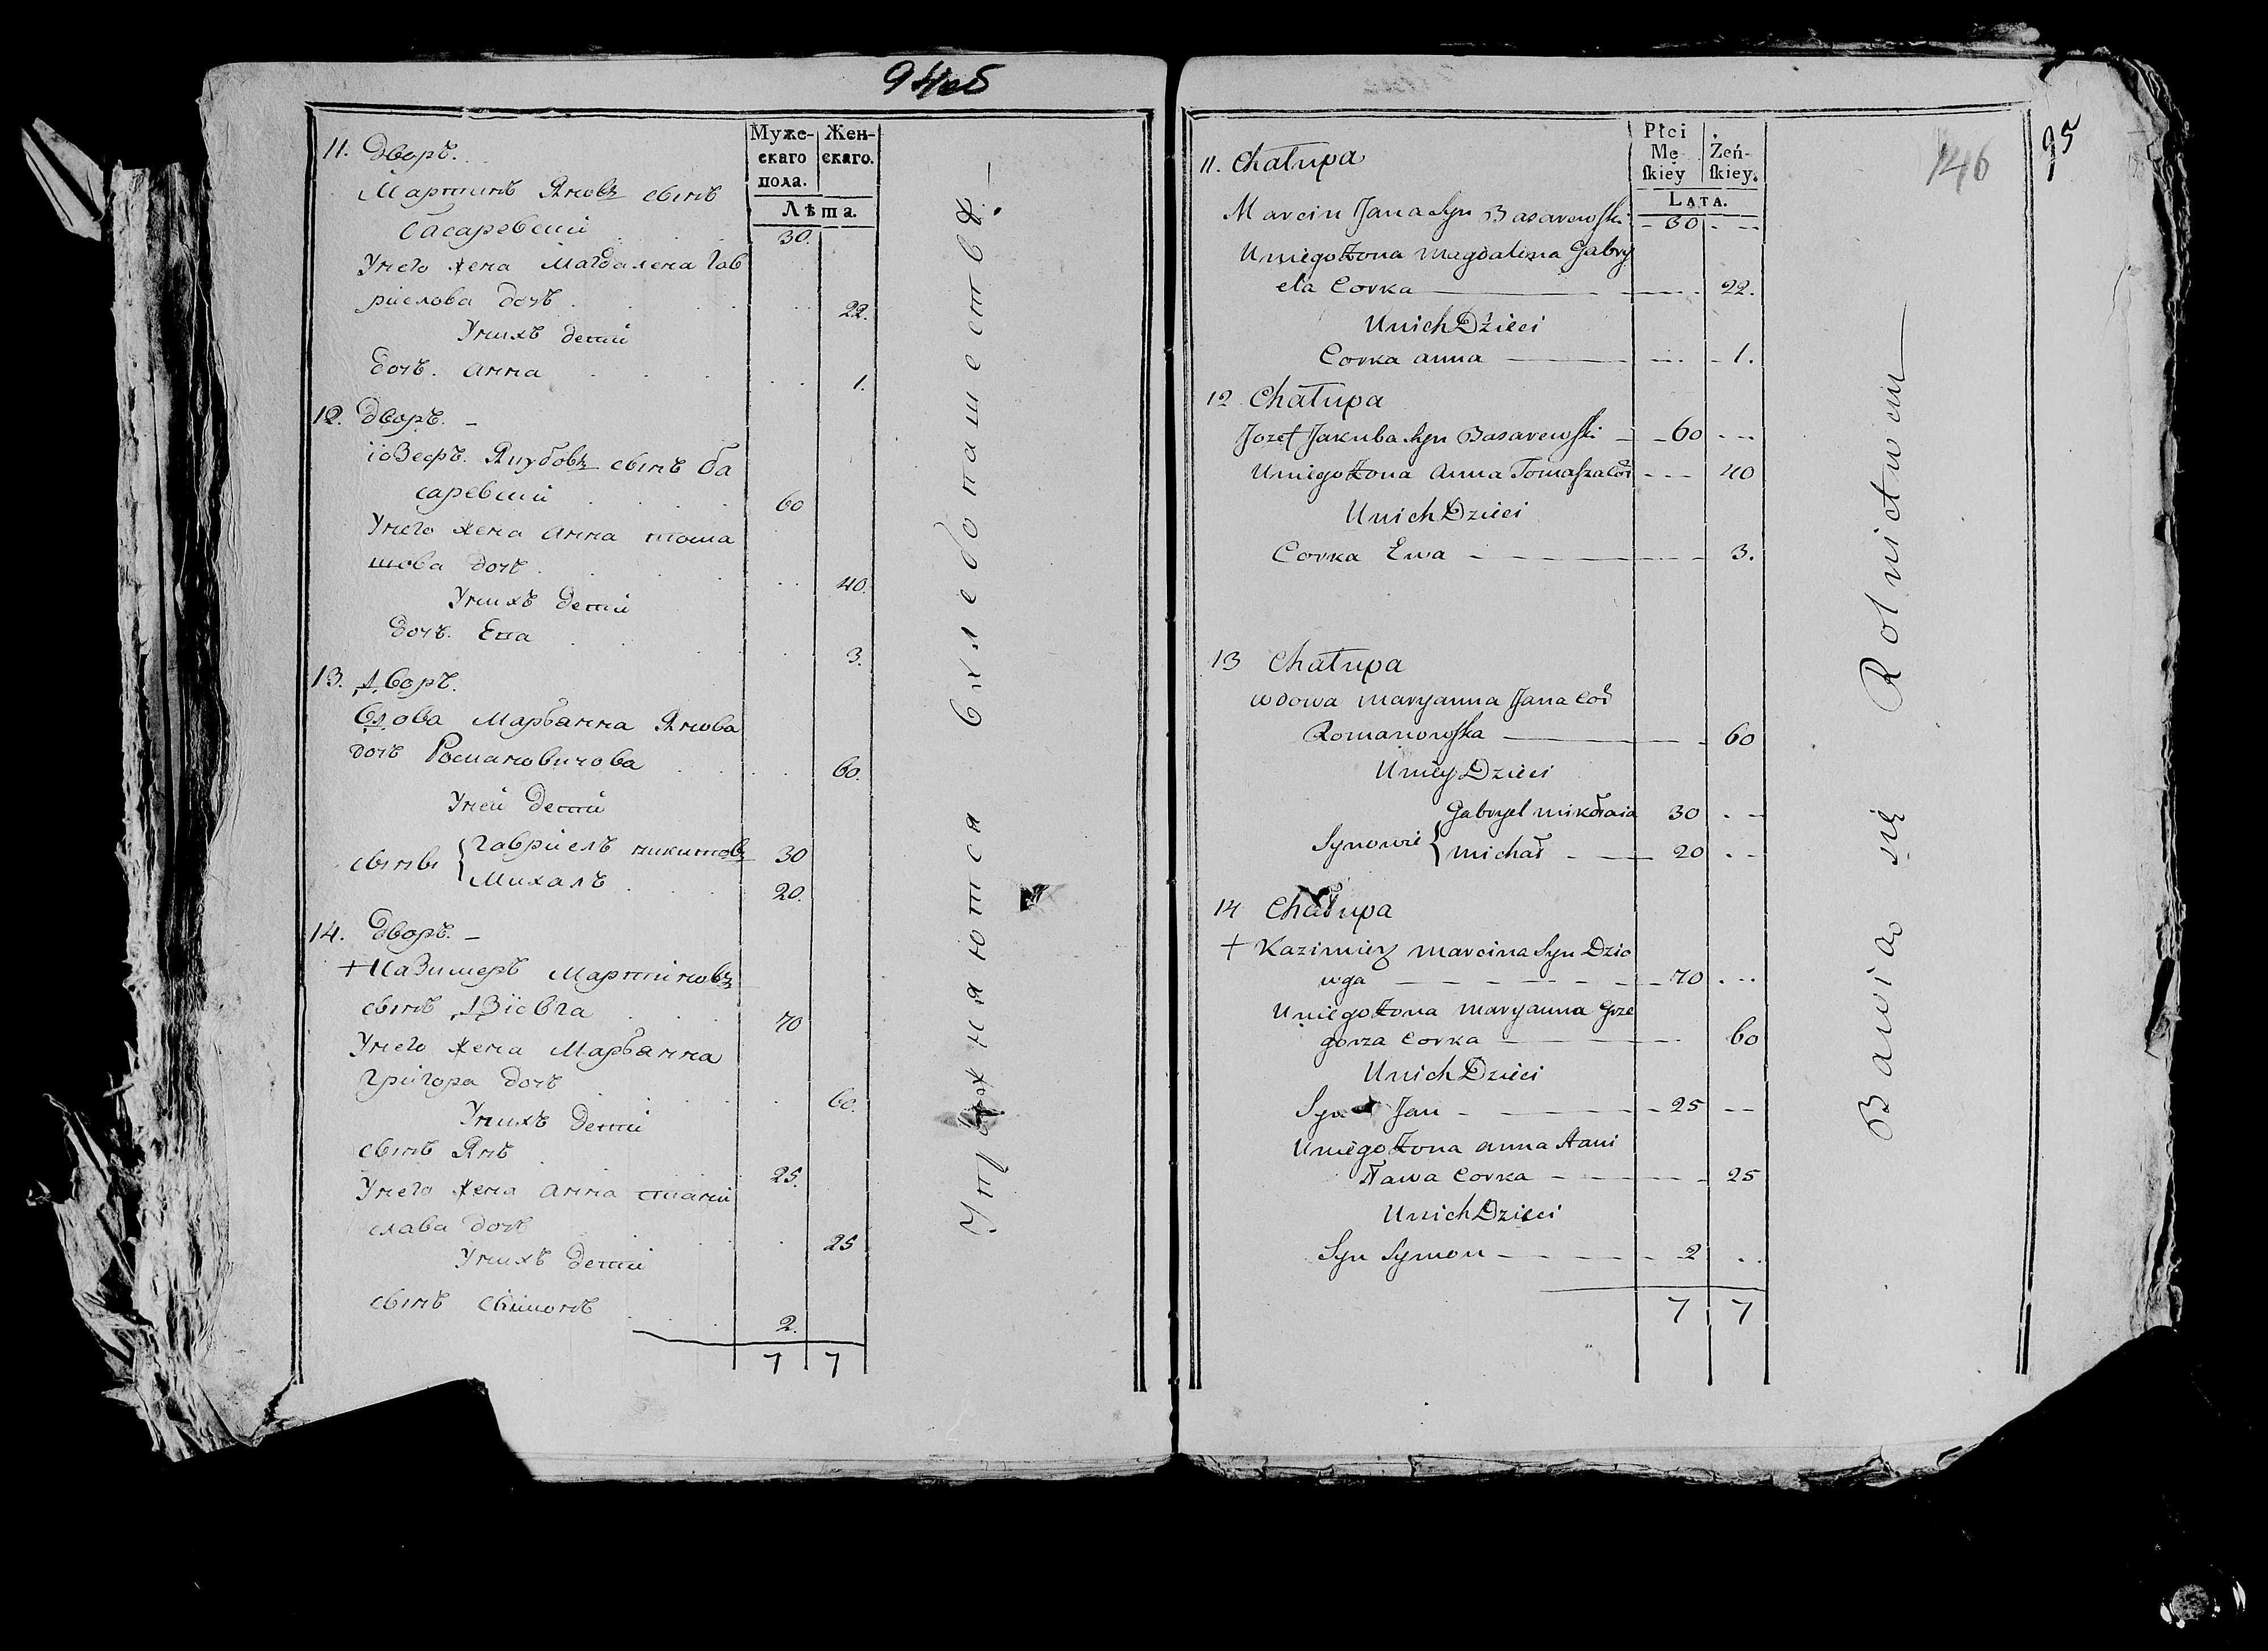 94об
Муже-
скаго
пола.
Жен-
скаго.
Лѣта.
11. Дворъ.
Мартинъ Яновъ сынъ
Басаревскій 30.
Унего жена Магдалена Гав
рiелова дочь 22.
Унихъ детии
дочь. Анна 1.
12. Дворъ. –
іозефъ. Якубовъ сынъ Ба
саревскій 60
Унего жена Анна тома
шова дочь 40.
Унихъ детии
дочъ. Ева 3.
13. Дворъ.
Вдова Марьянна Янова
дочь Романовичова 60.
Уней детии
сыны { Гавріелъ никитовъ 30
Михалъ 20.
14. Дворъ. –
+ Казимеръ Мартиновъ
сынъ Дзіовга 70
Унего жена Марьянна
Григора дочь 60.
Унихъ детии
сынъ Янъ 25.
Унего жена Анна стани
слава дочь 25
Унихъ детии
сынъ Сымонъ 2.
7 7
Упражняются вхлебопашествѣ. –
95
146
Płci
Mę
ſkiey
Żeń-
ſkiey.
LATA.
11. Chałupa
Marcin Jana Syn Basarewſki 30
Uniego Żona Magdalena Gabry
ela Corka 22.
Unich Dzieci
Corka Anna 1.
12 Chałupa
Jozef Jakuba Syn Basarewſki 60
Uniego Żona Anna Tomaſza Cor 40
Unich Dzieci
Corka Ewa 3.
13 Chałupa
Wdowa Maryanna Jana Cor
Romanowſka 60
Uniey Dzieci
Synowie { Gabryel Mikołaia 30
Michał 20
14 Chałupa
+ Kazimierz Marcina Syn Dzio
wga 70
Uniego Żona Maryanna Grze
gorza Corka 60
Unich Dzieci
Syn Jan 25
Uniego Żona Anna Stani
sława Corka 25
Unich Dzieci
Syn Symon 2
7 7
Bawią się Rolnictwem